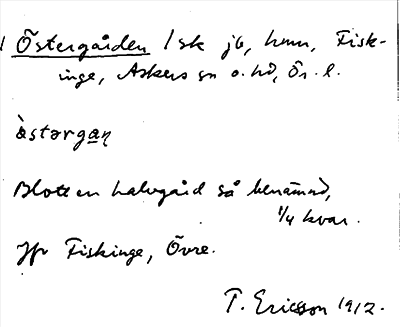 Östergården 1 sk jb, hmn, Fisk-
inge, Askers sn o. hd, Ör. l.
àstərgan̥
Blott en halvgård så benämnd,
1/4 kvar.
Jfr Fiskinge, Övre.
T. Ericsson 1912.